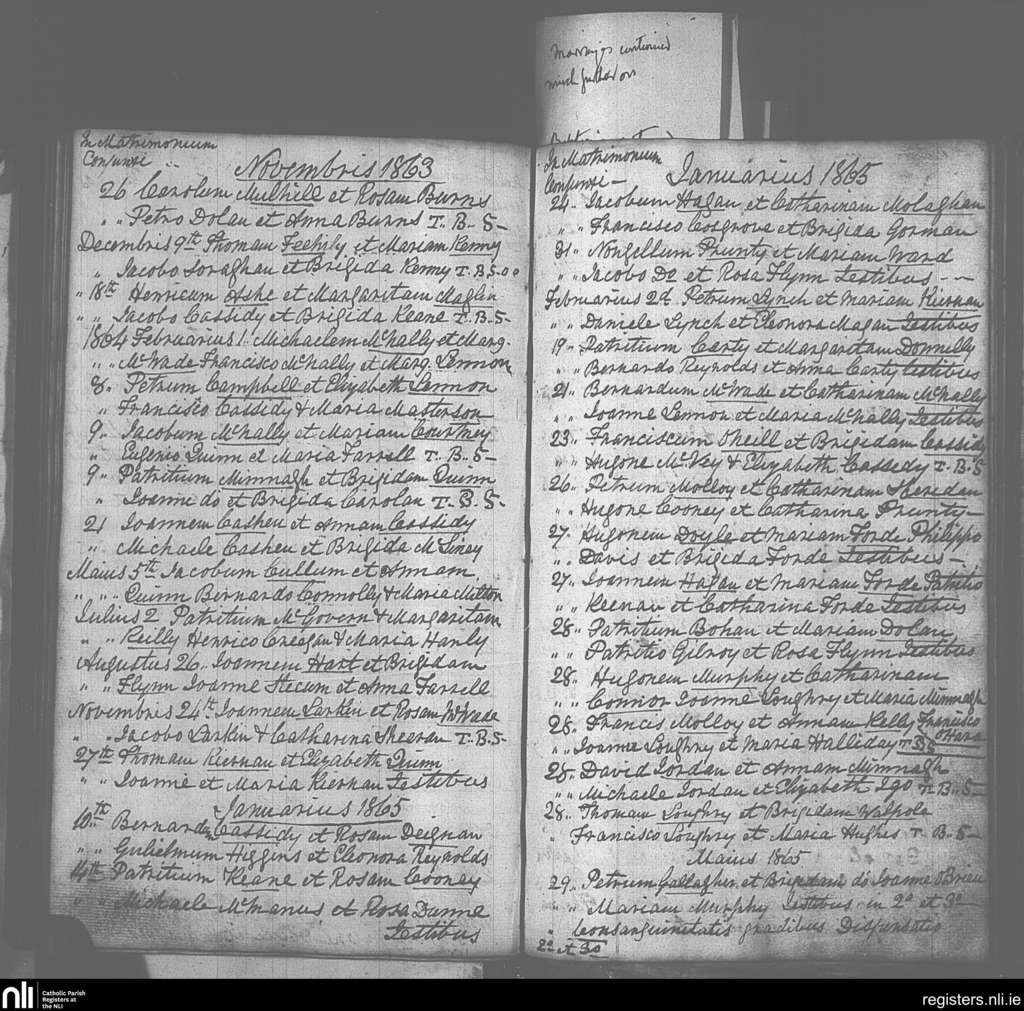 Marriages continued
much further on
In Matrimonium
Conjunxi
Novembris 1863
26 Carolum Mulhill et Rosam Burns
" " Petro Dolan et Anna Burns T. B. S-
Decembris 9th Thomam Feehily et Mariam Kenny
" Jacobo Soraghan et Brigida Kenny T. B. S-
" 18th Henricum Ashe et Margaritam Maglin
" " Jacobo Cassidy et Brigida Keane T. B. S-
1864 Februarius 1 Michaelem McNally et Marg.
" " McWade Francisco McNally et Marg. Lennon
8 " Petrum Campbell et Elizabeth Lennon
" Francisco Cassidy & Maria Masterson
9 " Jacobum McNally et Mariam Courtney
" Eugenio Quinn et Maria Farrell T. B. S-
9 " Patritium Mimnagh et Brigidam Quinn
" Joanne do et Brigida Carolan T. B. S-
21 Joannem Cashen et Annam Cassidy
" Michaele Cashen et Brigida
Maius 5th Jacobum Cullum et Annam
" " " Quinn Bernardo Connolly & Maria Milton
Julius 2 Patritium McGovern & Margaritam
" " Reilly Henrico Creegan & Maria Hanly
Augustus 26 " Joannem Hart et Brigidam
" " Flynn Joanne et Anna Farrell
Novembris 24th Joannem Larken et Rosam McWade
" " Jacobo Larkin & Catharina Sheeran T. B. S-
27th Thomam Kiernan et Elizabeth Quinn
" " Joanne et Maria Kiernan Testibus
Januarius 1865
10th Bernardum Cassidy et Rosam Deignan
" " Gulielmum Higgins et Eleonora Reynolds
14th Patritium Keane et Rosam Cooney
" " Michaele McManus et Rosa Dunne
Testibus
In Matrimonium
Conjunxi -
Januarius 1865
24 " Jacobum Hagan et Catharinam Molaghan
" Francisco Cosgrove et Brigida Gorman
31 " Nongellum Prunty et Mariam Ward
" " Jacobo Do et Rosa Flynn Testibus - -
Februarius 2d. Petrum Lynch et Mariam Kiernan
" " Daniele Lynch et Eleonora Magan Testibus
19 " Patritium Carty et Margaritam Donnelly
" " Bernardo Reynolds et Anna Carty Testibus
21 " Bernardum McWade et Catharinam McNally
" " Joanne Lennon et Maria McNally Testibus
23 " Franciscum ONeill et Brigidam Cassidy
" " Hugone McVey & Elizabeth Cassedy T. B. S
26 " Petrum Molloy et Catharinam Sheridan
" " Hugone Cooney et Catharina Prunty-
27 " Hugonem Doyle et Mariam Forde Philippo
" " Davis et Brigida Forde Testibus -
27 " Joannem Hagan et Mariam Forde Patritio
" " Keenan et Catharina Forde Testibus
28 " Patritium Bohan et Mariam Dolan,
" " Patritio Gilroy et Rosa Flynn Testibus
28 " Hugonem Murphy et Catharinam
" " Connor Joanne Loughry et Maria Mimnagh
28 " Francis Molloy et Annam Kelly Francisco
OHara
" " Joanne Loughry et Maria Halliday T. B. S
28 " David Jordan et Annam Mimnagh
" " Michaele Jordan et Elizabeth Igo T. B. S-
28 " Thomam Loughry et Brigidam Walpole
" Francisco Loughry et Maria Hughes T. B. S-
Maius 1865
29 " Petrum Gallagher et Brigidam do Joanne OBrien
" " Mariam Murphy Testibus in 2o et 3o
" Consanguinitatis gradibus Dispensatio
2o et 3o
nli Catholic Parish
Registers at
the NLI
registers.nli.ie